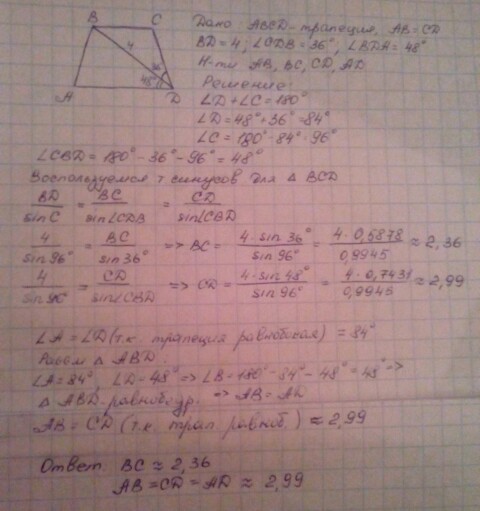 B C
Дано: ABCD-трапеция, AB=CD
4
BD=4; ∠CDB=36°; ∠BDA=48°
36°
48°
Н-ти AB, BC, CD, AD
A D
Решение:
∠D+∠C=180°
∠D=48°+36°=84°
∠C=180°-84°=96°
∠CBD=180°-36°-96°=48°
Воспользуемся т синусов для △ BCD
BD/sinC = BC/sin∠CDB = CD/sin∠CBD
4/sin96° = BC/sin36° => BC= 4·sin36°/sin96° = 4·0,5878/0,9945 ≈ 2,36
4/sin96° = CD/sin∠CBD => CD= 4·sin48°/sin96° = 4·0,7431/0,9945 ≈ 2,99
∠A=∠D(т.к. трапеция равнобокая) = 84°
Рассм △ ABD.
∠A=84°, ∠D=48° => ∠B=180°-84°-48°=48° =>
△ ABD-равноб. => AB=AD
AB=CD(т.к. трап. равноб.) ≈ 2,99
Ответ BC ≈ 2,36
AB=CD=AD ≈ 2,99